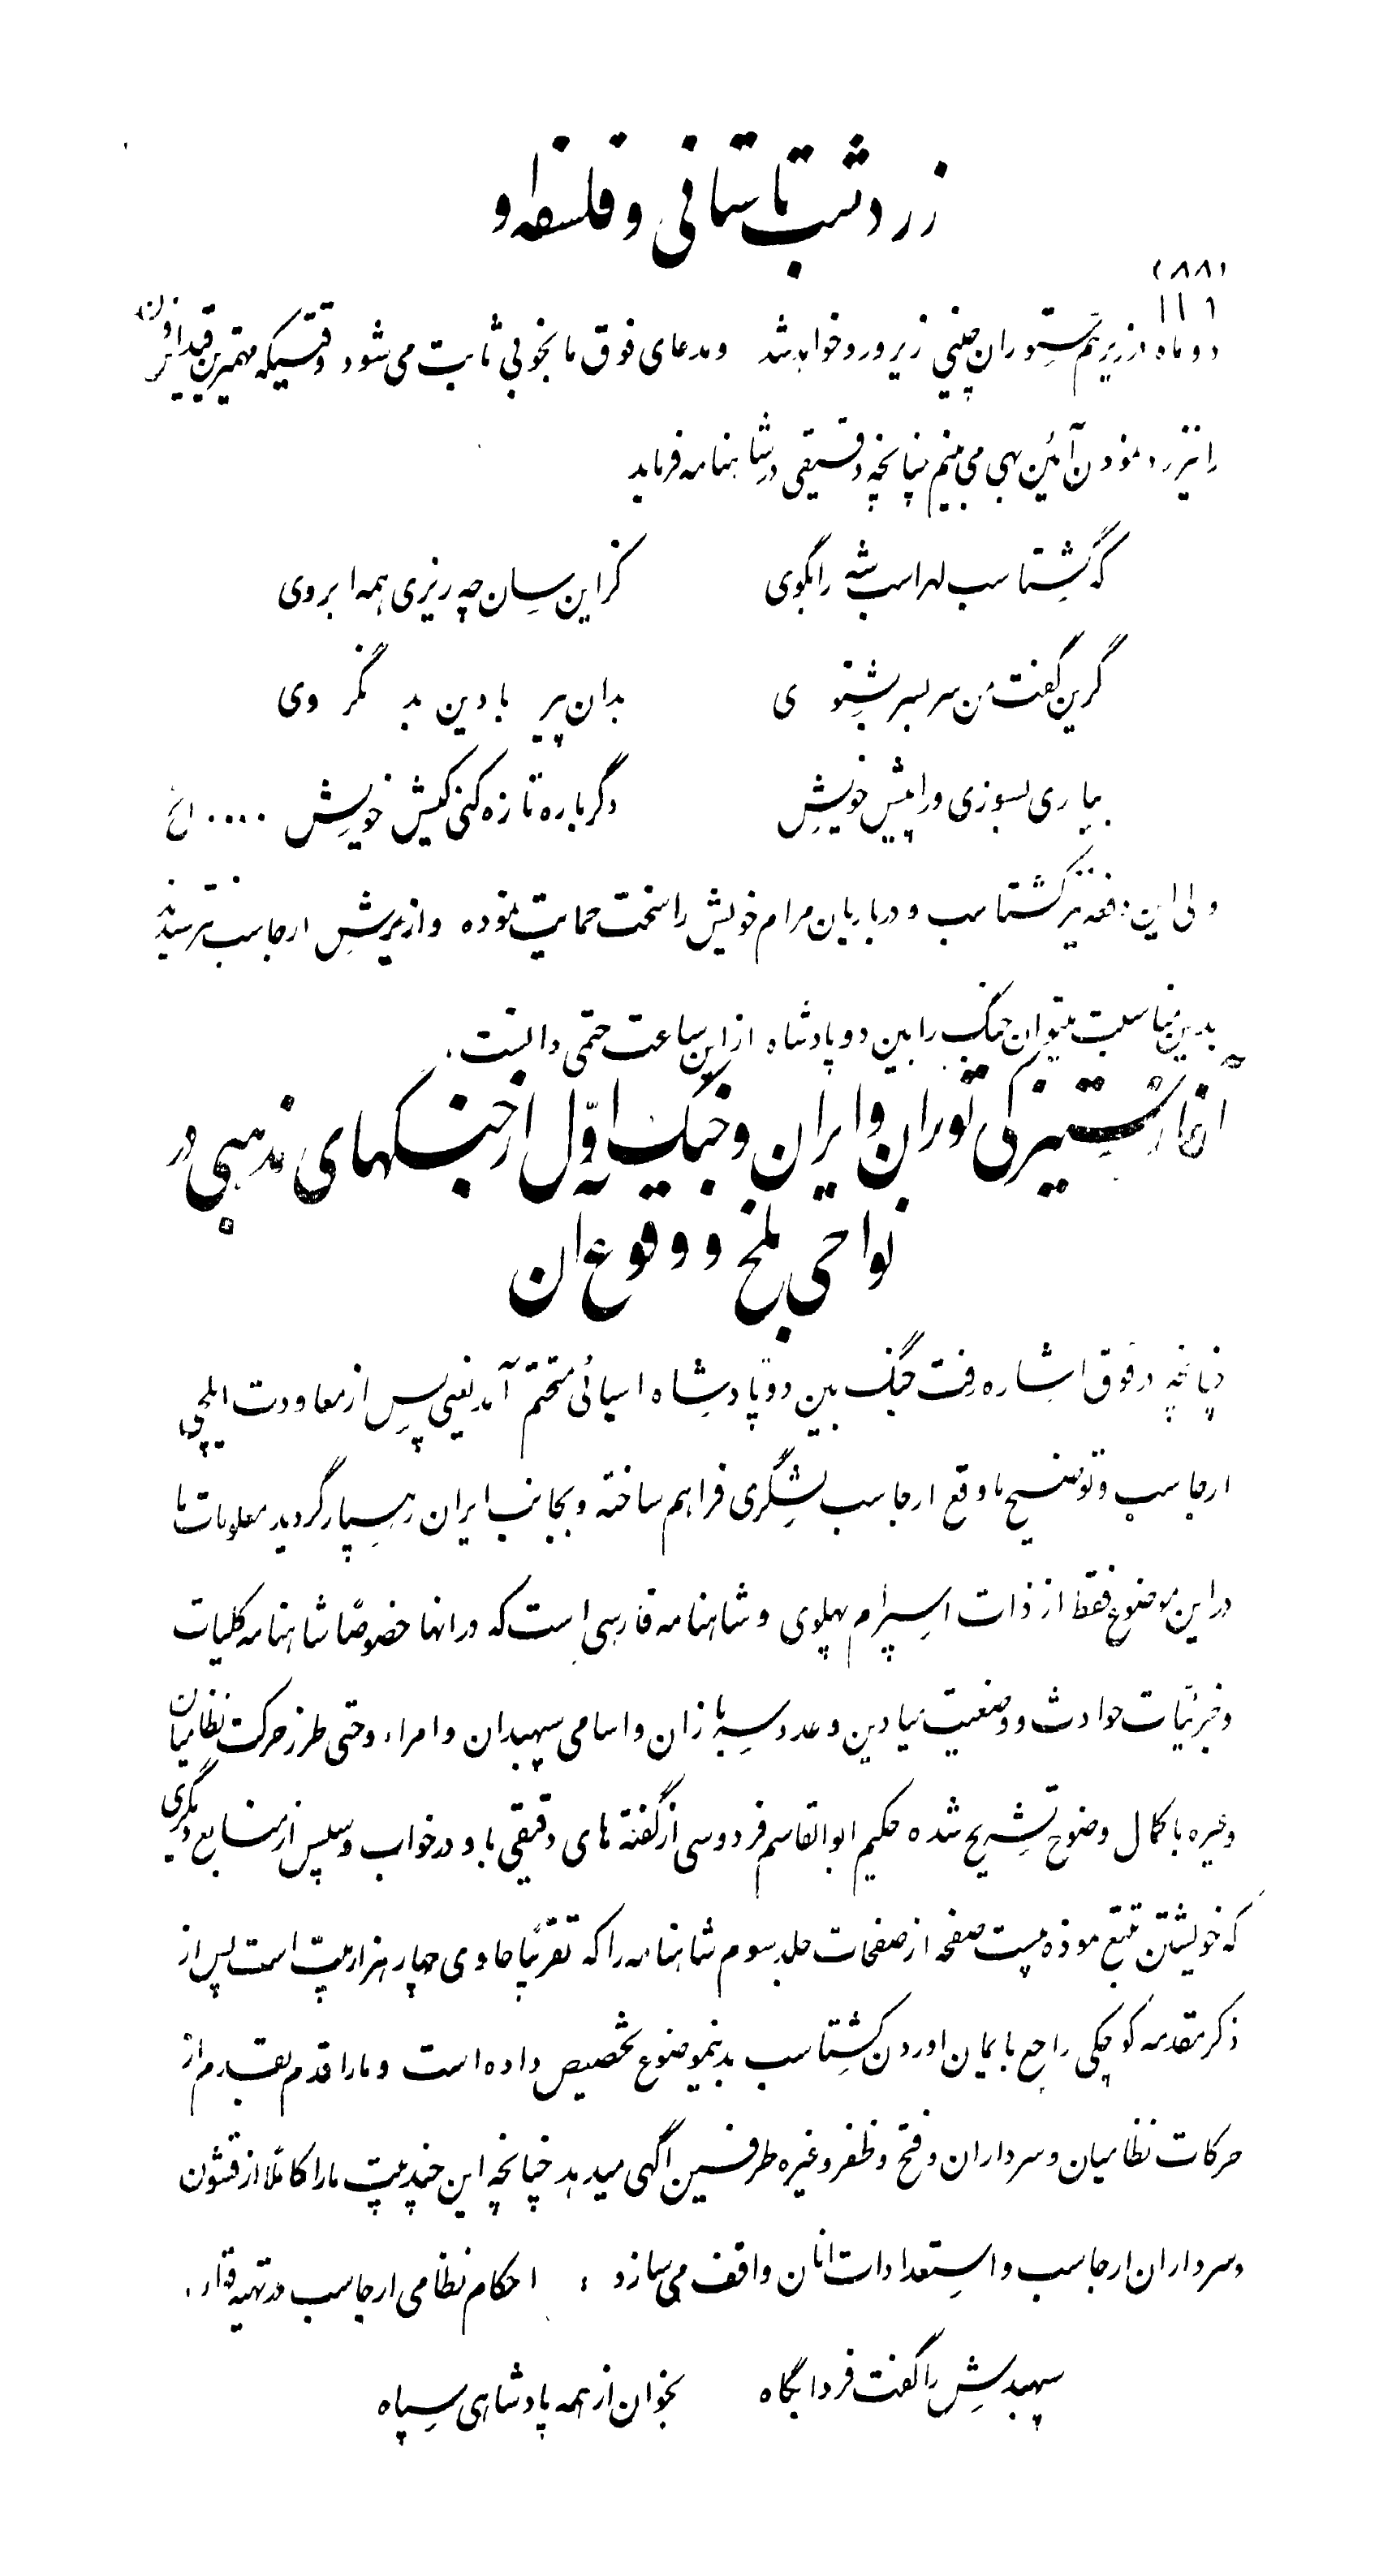 زردشت باستانی و فلسفه او
(۸۸)
۱۱۱
دو ماه در زیر سم ستوران چینی زیر و رو خواهد شد و مدعای فوق ما بخوبی ثابت می شود وقتیکه مهمترین قید او
را نیز رد نمودن آئین بهی می بینیم چنانچه دقیقی در شاهنامه فرماید
که گشتاسب لهراسب شه را بگوی کزاین سان چه ریزی همه ابروی
گرین گفت من سر بسر بشنوی بدان پیر بادین بد نگروی
بیاری بسوزی ورا پیش خویش دگرباره تازه کنی کیش خویش .... الخ
ولی این دفعه نیز گشتاسب و درباریان مرام خویش را سخت حمایت نموده و از یرش ارجاسب نترسیدند
بدین مناسبت میتوان جنگ را بین دو پادشاه از این ساعت حتمی دانست .
آغاز ستیزگی توران و ایران و جنگ اوّل از جنگهای مذهبی در
نواحی بلخ و وقوع ان
چنانچه در فوق اشاره رفت جنگ بین دو پادشاه اسیائی متحتم آمد یعنی پس از معاودت ایلچی
ارجاسب و توضیح ماوقع ارجاسب لشگری فراهم ساخته و بجانب ایران رهسپار گردید معلومات ما
در این موضوع فقط از ذات اسپرام پهلوی و شاهنامه فارسی است که در انها خصوصًا شاهنامه کلیات
و جزئیات حوادث و وضعیت میادین و عدد سربازان و اسامی سپهبدان و امراء و حتی طرز حرکت نظامیان
و غیره با کمال وضوح تشریح شده حکیم ابوالقاسم فردوسی از گفته های دقیقی باو در خواب و سپس از منابع دیگری
که خویشتن تتبع نموده بیست صفحه از صفحات جلد سوم شاهنامه را که تقریبًا حاوی چهار هزار بیت است پس از
ذکر مقدمه کوچکی راجع بایمان اوردن گشتاسب بدینموضوع تخصیص داده است و مارا قدم بقدم از
حرکات نظامیان و سرداران و فتح و ظفر و غیره طرفین اگهی میدهد چنانچه این چند بیت مارا کاملًا از قشون
و سرداران ارجاسب و استعدادات انان واقف می سازد : احکام نظامی ارجاسب در تهیه قوا .
سپهبدش را گفت فردا پگاه بخوان از همه پادشاهی سپاه